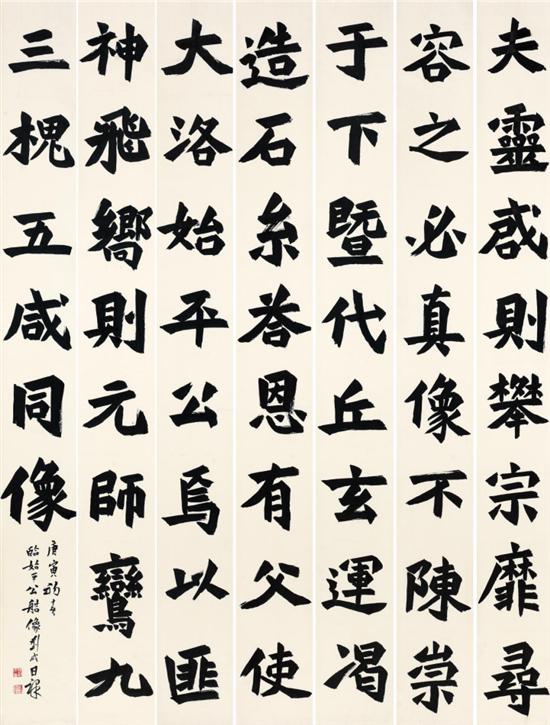 夫靈咸則攀宗靡尋
容之必真像不陳崇
于下暨代丘玄運渴
造石糸荅恩有父使
大洛始平公焉以匪
神飛嚮則元師鸞九
三槐五咸同像
庚寅
臨始平公造像劉